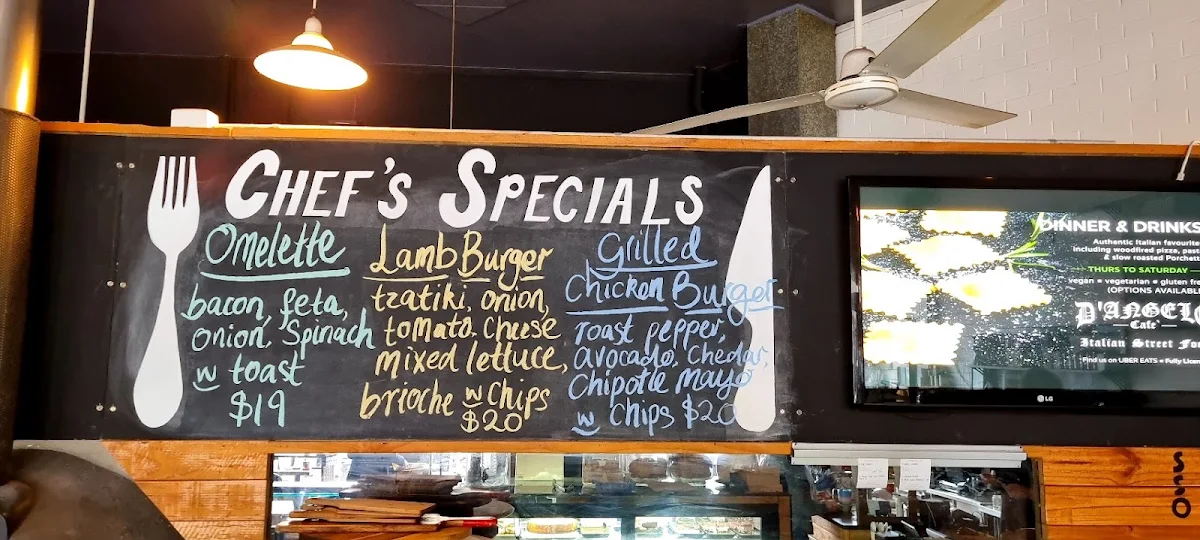 CHEF'S SPECIALS
Omelette
bacon, feta,
onion, Spinach
w toast
$19
Lamb Burger
tzatiki, onion,
tomato. Cheese
mixed lettuce,
brioche w Chips
$20
Grilled
Chicken Burger
roast pepper,
avocado, Chedar,
Chipotle mayo
w Chips $20
DINNER & DRINKS
Authentic Italian favourite
including woodfired pizza,
& slow roasted
THURS TO SATURDAY
vegan • vegetarian • gluten
OPTIONS AVAILABLE
D'ANGELO
Cafe
Italian Street
Find us on UBER EATS • Fully
LG